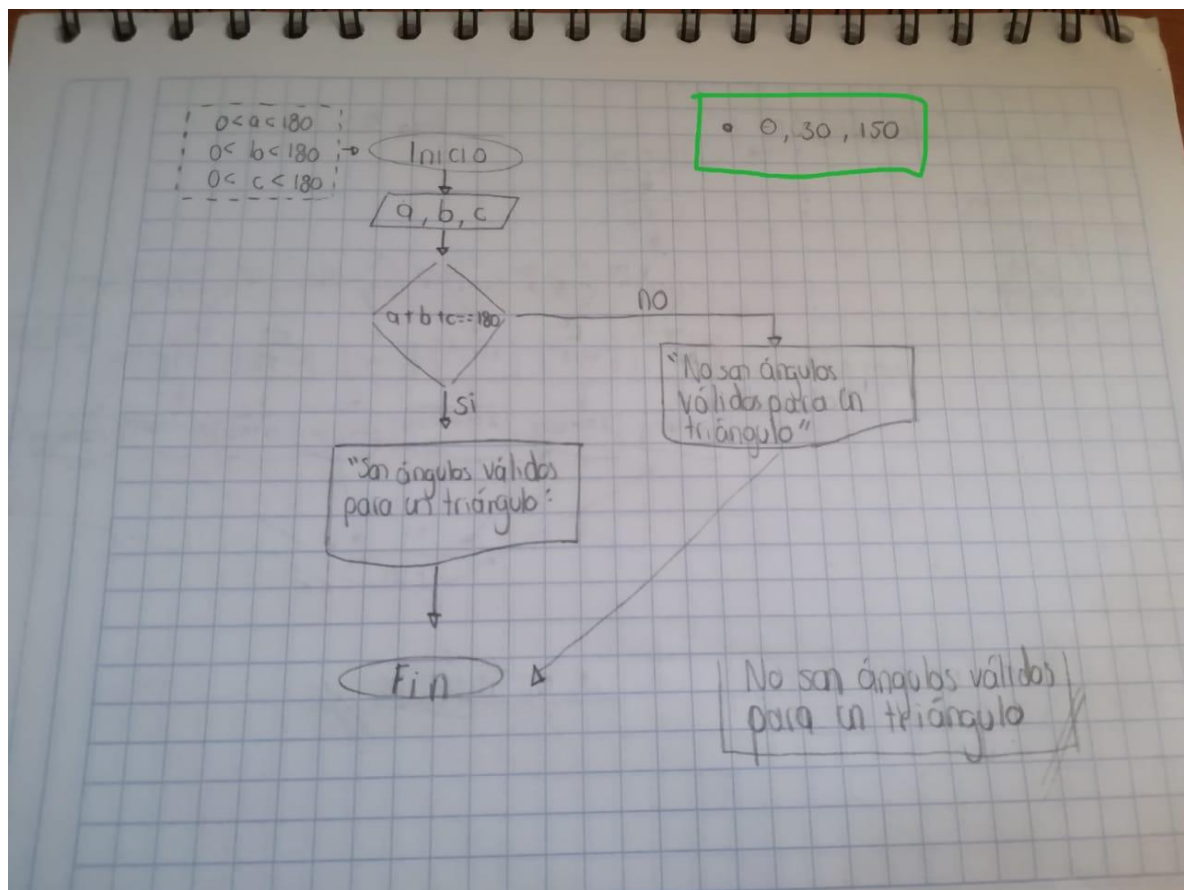 0<a<180
0< b<180
0< c<180
Inicio
• 0, 30, 150
a, b, c
a+b+c==180
no
si
"No son ángulos
válidos para un
triángulo"
"Son ángulos válidos
para un triángulo"
Fin
No son ángulos válidos
para un triángulo